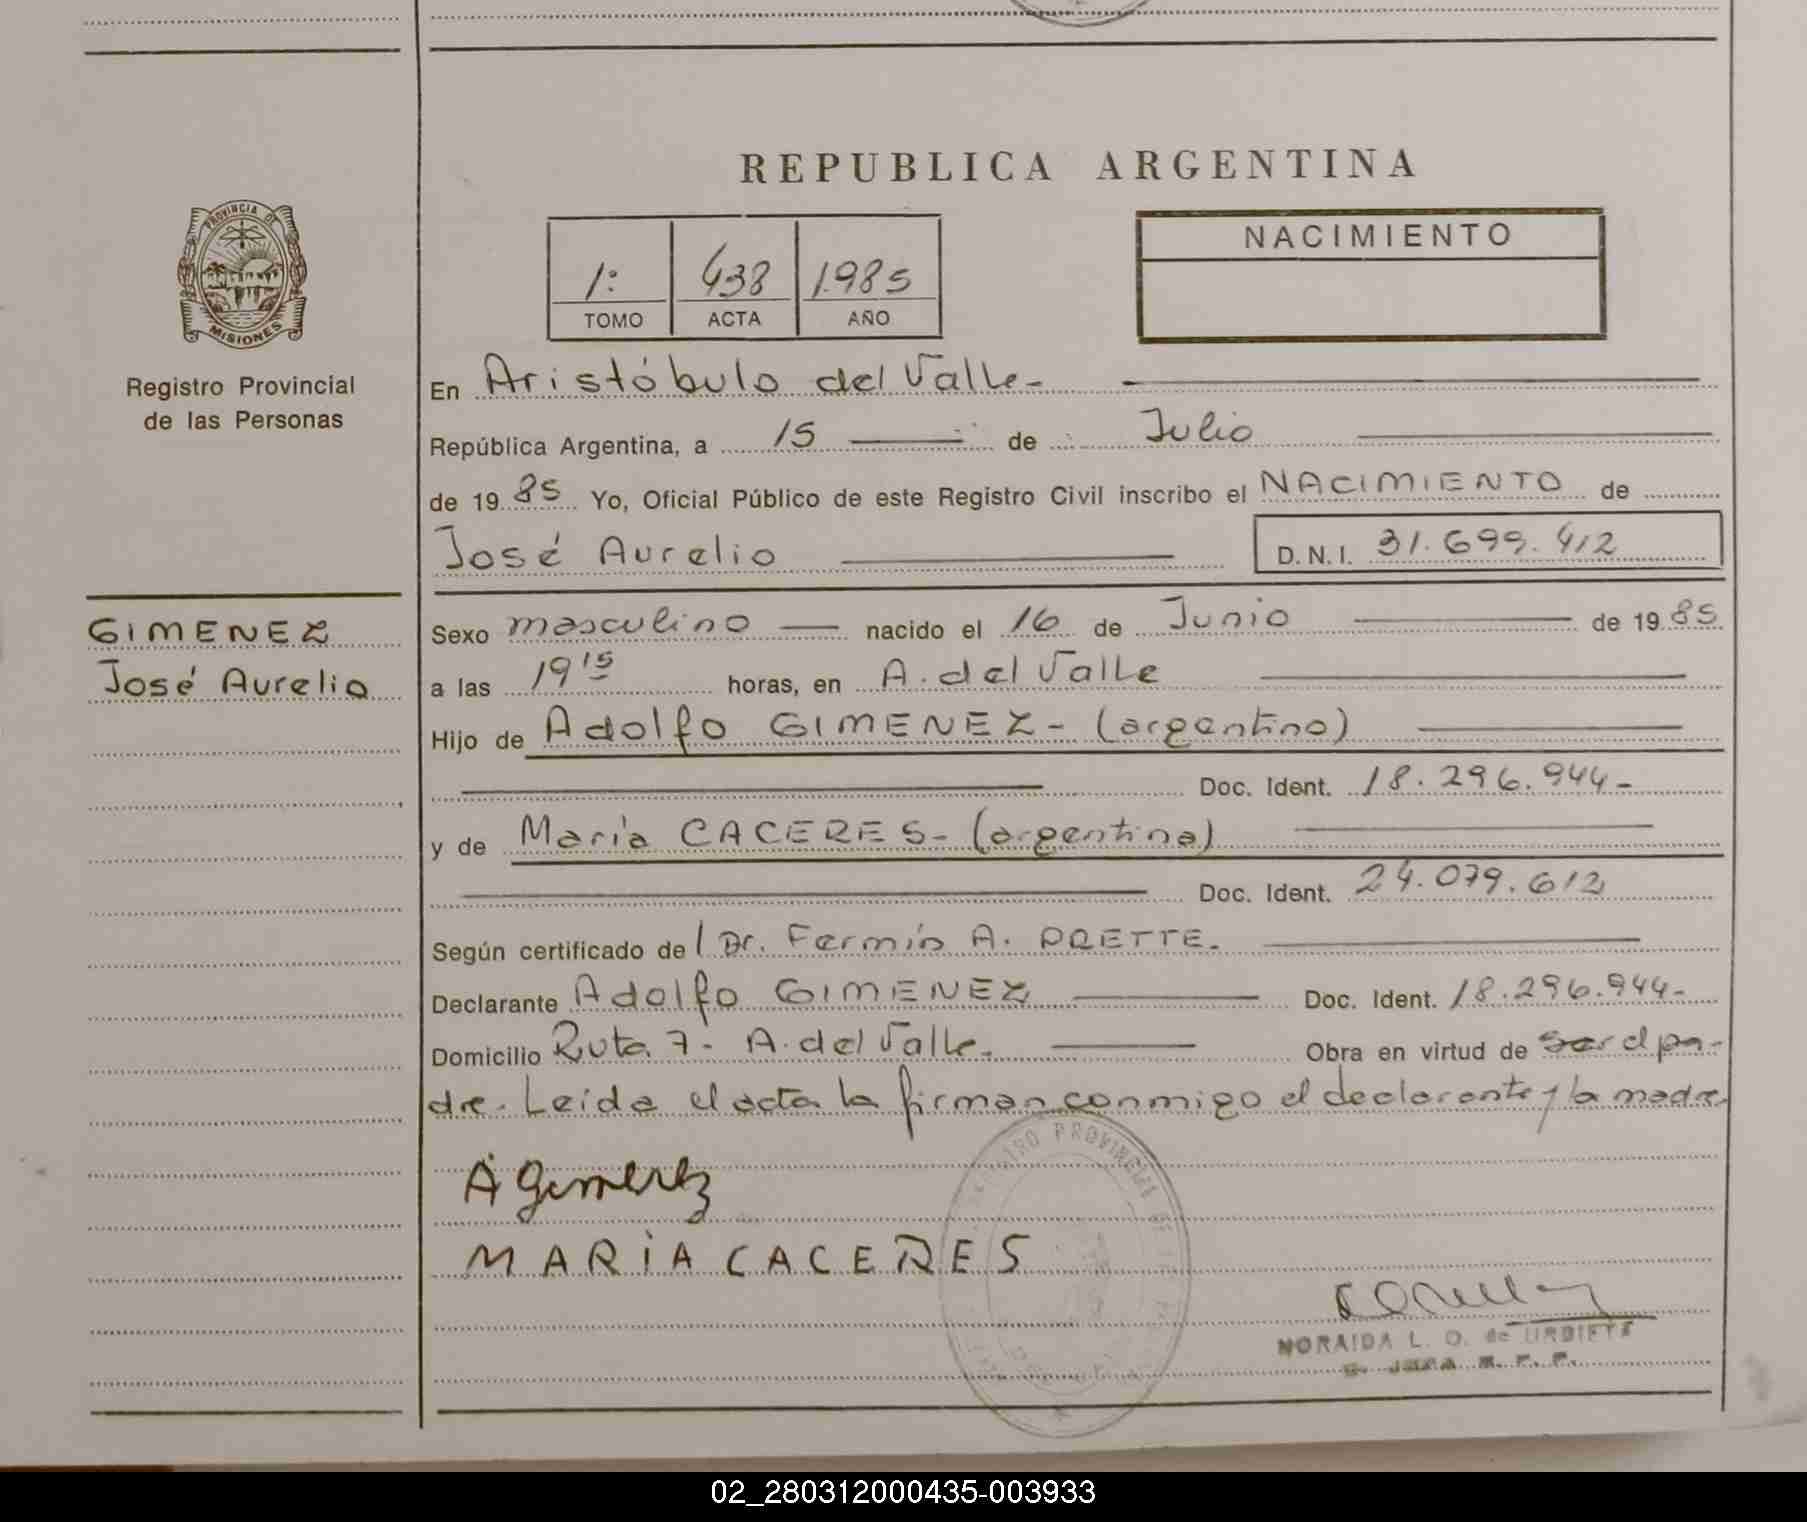 REPUBLICA ARGENTINA
PROVINCIA DE
MISIONES
Registro Provincial
de las Personas
1: 438 1.985
TOMO ACTA AÑO
NACIMIENTO
En Aristóbulo del Valle-
República Argentina, a 15 de Julio
de 19 85 Yo, Oficial Público de este Registro Civil inscribo el NACIMIENTO de
José Aurelio D.N.I. 31.699.412
GIMENEZ
José Aurelio
Sexo masculino nacido el 16 de Junio de 19 85
a las 19 15 horas, en A. del Valle
Hijo de Adolfo GIMENEZ- (argentino)
Doc. Ident. 18.296.944-
y de María CACERES- (argentina)
Doc. Ident. 24.079.612
Según certificado de Dr. Fermín A. PRETTE.
Declarante Adolfo GIMENEZ Doc. Ident. 18.296.944-
Domicilio Ruta 7- A. del Valle. Obra en virtud de ser el pa-
dre. Leida el acta la firman conmigo el declarante y la madre.
A Gimenez
MARIA CACERES
REGISTRO PROVINCIAL DE
NORAIDA L. O. de URBIETA
02_280312000435-003933